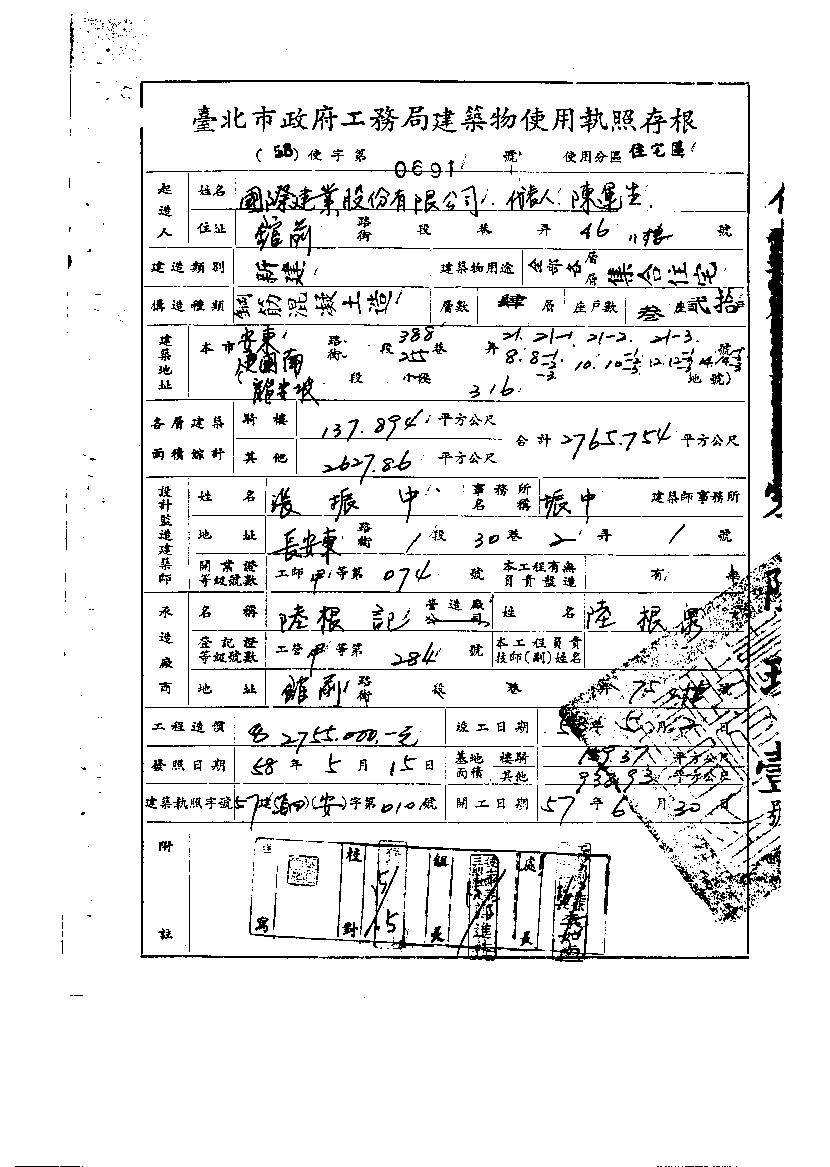 臺北市政府工務局建築物使用執照存根
(58)使字第 0691 號 使用分區 住宅區
起造人 姓名 國際建業股份有限公司 代表人 陳運生
住址 館前 路街 段 巷 弄 46 號
建造類別 新建 建築物用途 全部各層 集合住宅
構造種類 鋼筋混凝土造 層數 肆 層 座戶數 叁 座 貳拾
建築地址 本市 安東 路街 段 388 巷 弄 21. 21-1. 21-2. 21-3. 號
255 8. 8-1 -2 -3 10. 10-1 12. 12-1 14.
段 小段 316 地號)
各層建築面積總計 騎樓 137.894 平方公尺 合計 2765.754 平方公尺
其他 2627.86 平方公尺
設計監造建築師 姓名 張振中 事務所名稱 振中 建築師事務所
地址 長安東 路街 1 段 30 巷 2 弄 1 號
開業證等級號數 工師 甲 等第 074 號 本工程有無員責監造 有
承造廠商 名稱 陸根記 營造廠公司 姓名 陸根泉
登記證等級號數 工營 甲 等第 284 號 本工程員責技師(副)姓名
地址 館前 路街 段 巷 弄 75 號
工程造價 2755.000.-元 竣工日期 年 5 月 日
發照日期 58 年 5 月 15 日 基地面積 樓騎 平方公尺
其他 938.93 平方公尺
建築執照字號 57 建(安)字第 010 號 開工日期 57 年 6 月 30 日
附註
寫 校對 5/15 組長 處長
壹
號